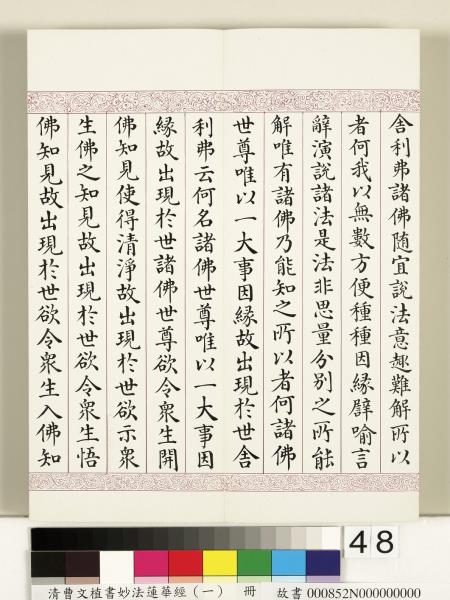 舍利弗諸佛隨宜說法意趣難解所以
者何我以無數方便種種因緣譬喻言
辭演說諸法是法非思量分別之所能
解唯有諸佛乃能知之所以者何諸佛
世尊唯以一大事因緣故出現於世舍
利弗云何名諸佛世尊唯以一大事因
緣故出現於世諸佛世尊欲令眾生開
佛知見使得清淨故出現於世欲示眾
生佛之知見故出現於世欲令眾生悟
佛知見故出現於世欲令眾生入佛知
48
清曹文植書妙法蓮華經(一) 冊 故書 000852N000000000